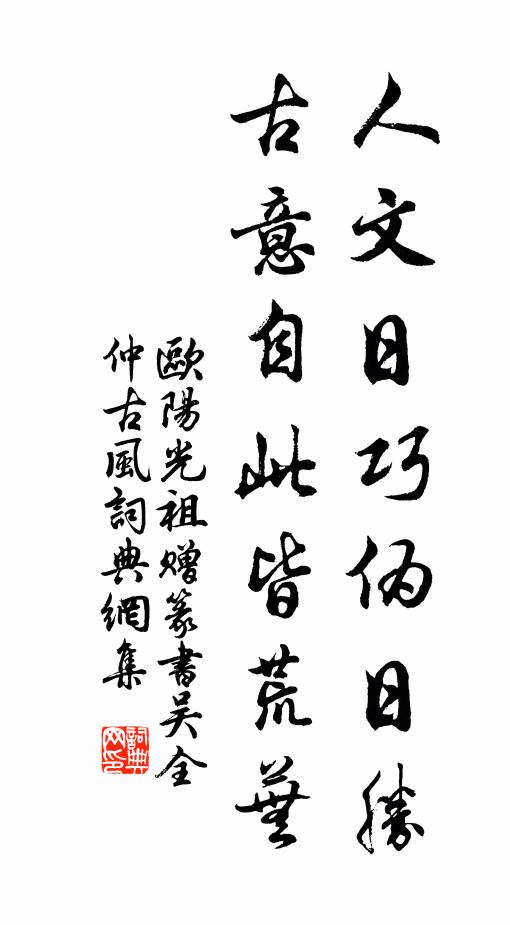 人文日巧伪日勝
古意自此皆荒蕪
歐陽光祖赠篆書吴全
仲古風詞典網集
詞典网印